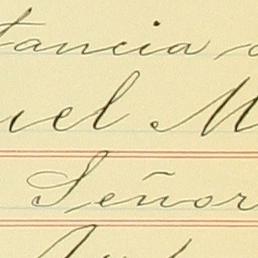 tancia
uel M
Señor